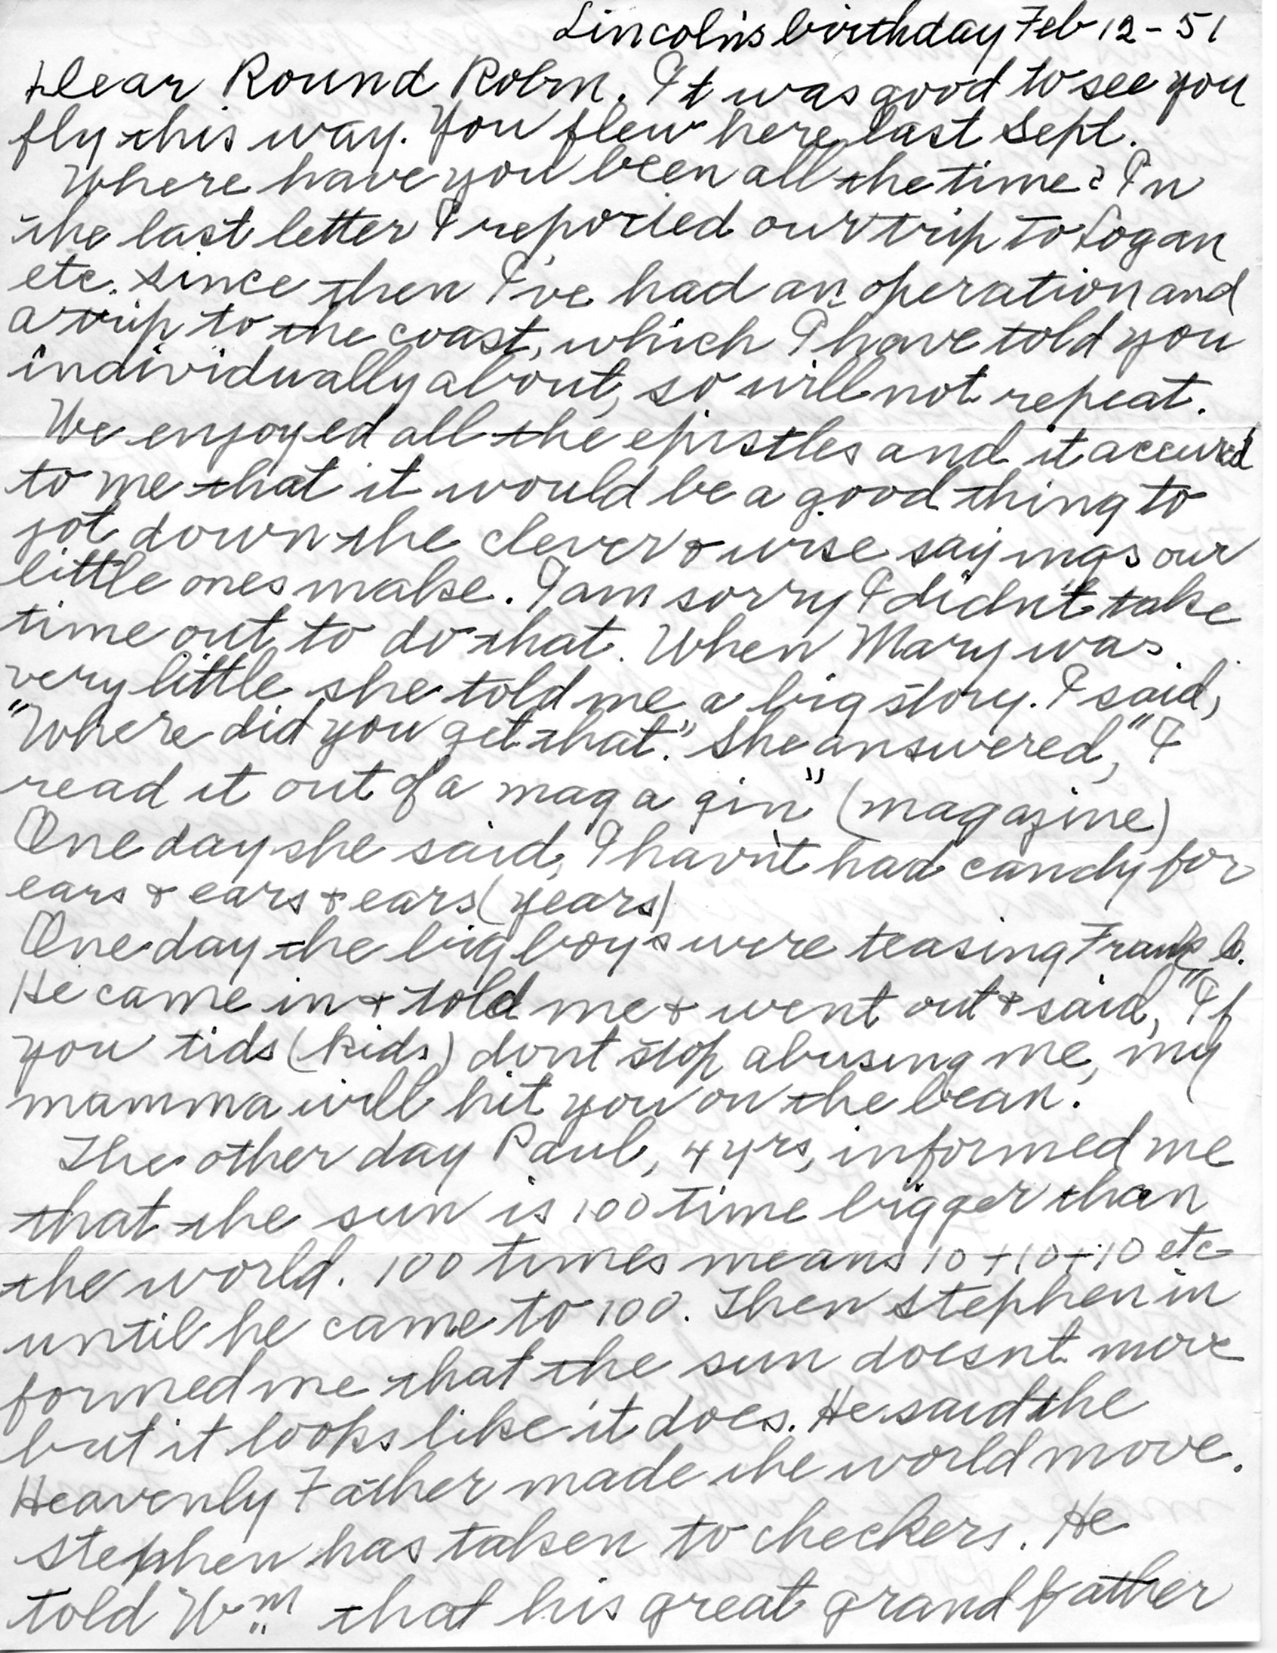 Lincoln's birthday Feb 12-51
Dear Round Robin. It was good to see you
fly this way. You flew here last Sept.
Where have you been all the time? In
the last letter I reported our trip to Logan
etc. Since then I've had an operation and
a trip to the coast, which I have told you
individually about, so will not repeat.
We enjoyed all the epistles and it accured
to me that it would be a good thing to
jot down the clever & wise sayings our
little ones make. I am sorry I didn't take
time out to do that. When Mary was
very little she told me a big story. I said,
"Where did you get that." She answered, "I
read it out of a mag a zin" (magazine)
One day she said, I havn't had candy for
ears & ears & ears (years)
One day the big boys were teasing Frank
He came in & told me & went out & said, "If
you tids (kids) dont stop abusing me, my
mamma will hit you on the bean.
The other day Paul, 4 yrs, informed me
that the sun is 100 time bigger than
the world. 100 times means 10+10+10 etc
until he came to 100. Then Stephen in
formed me that the sun doesnt move
but it looks like it does. He said the
Heavenly Father made the world move.
Stephen has taken to checkers. He
told Wm. that his great grandfather